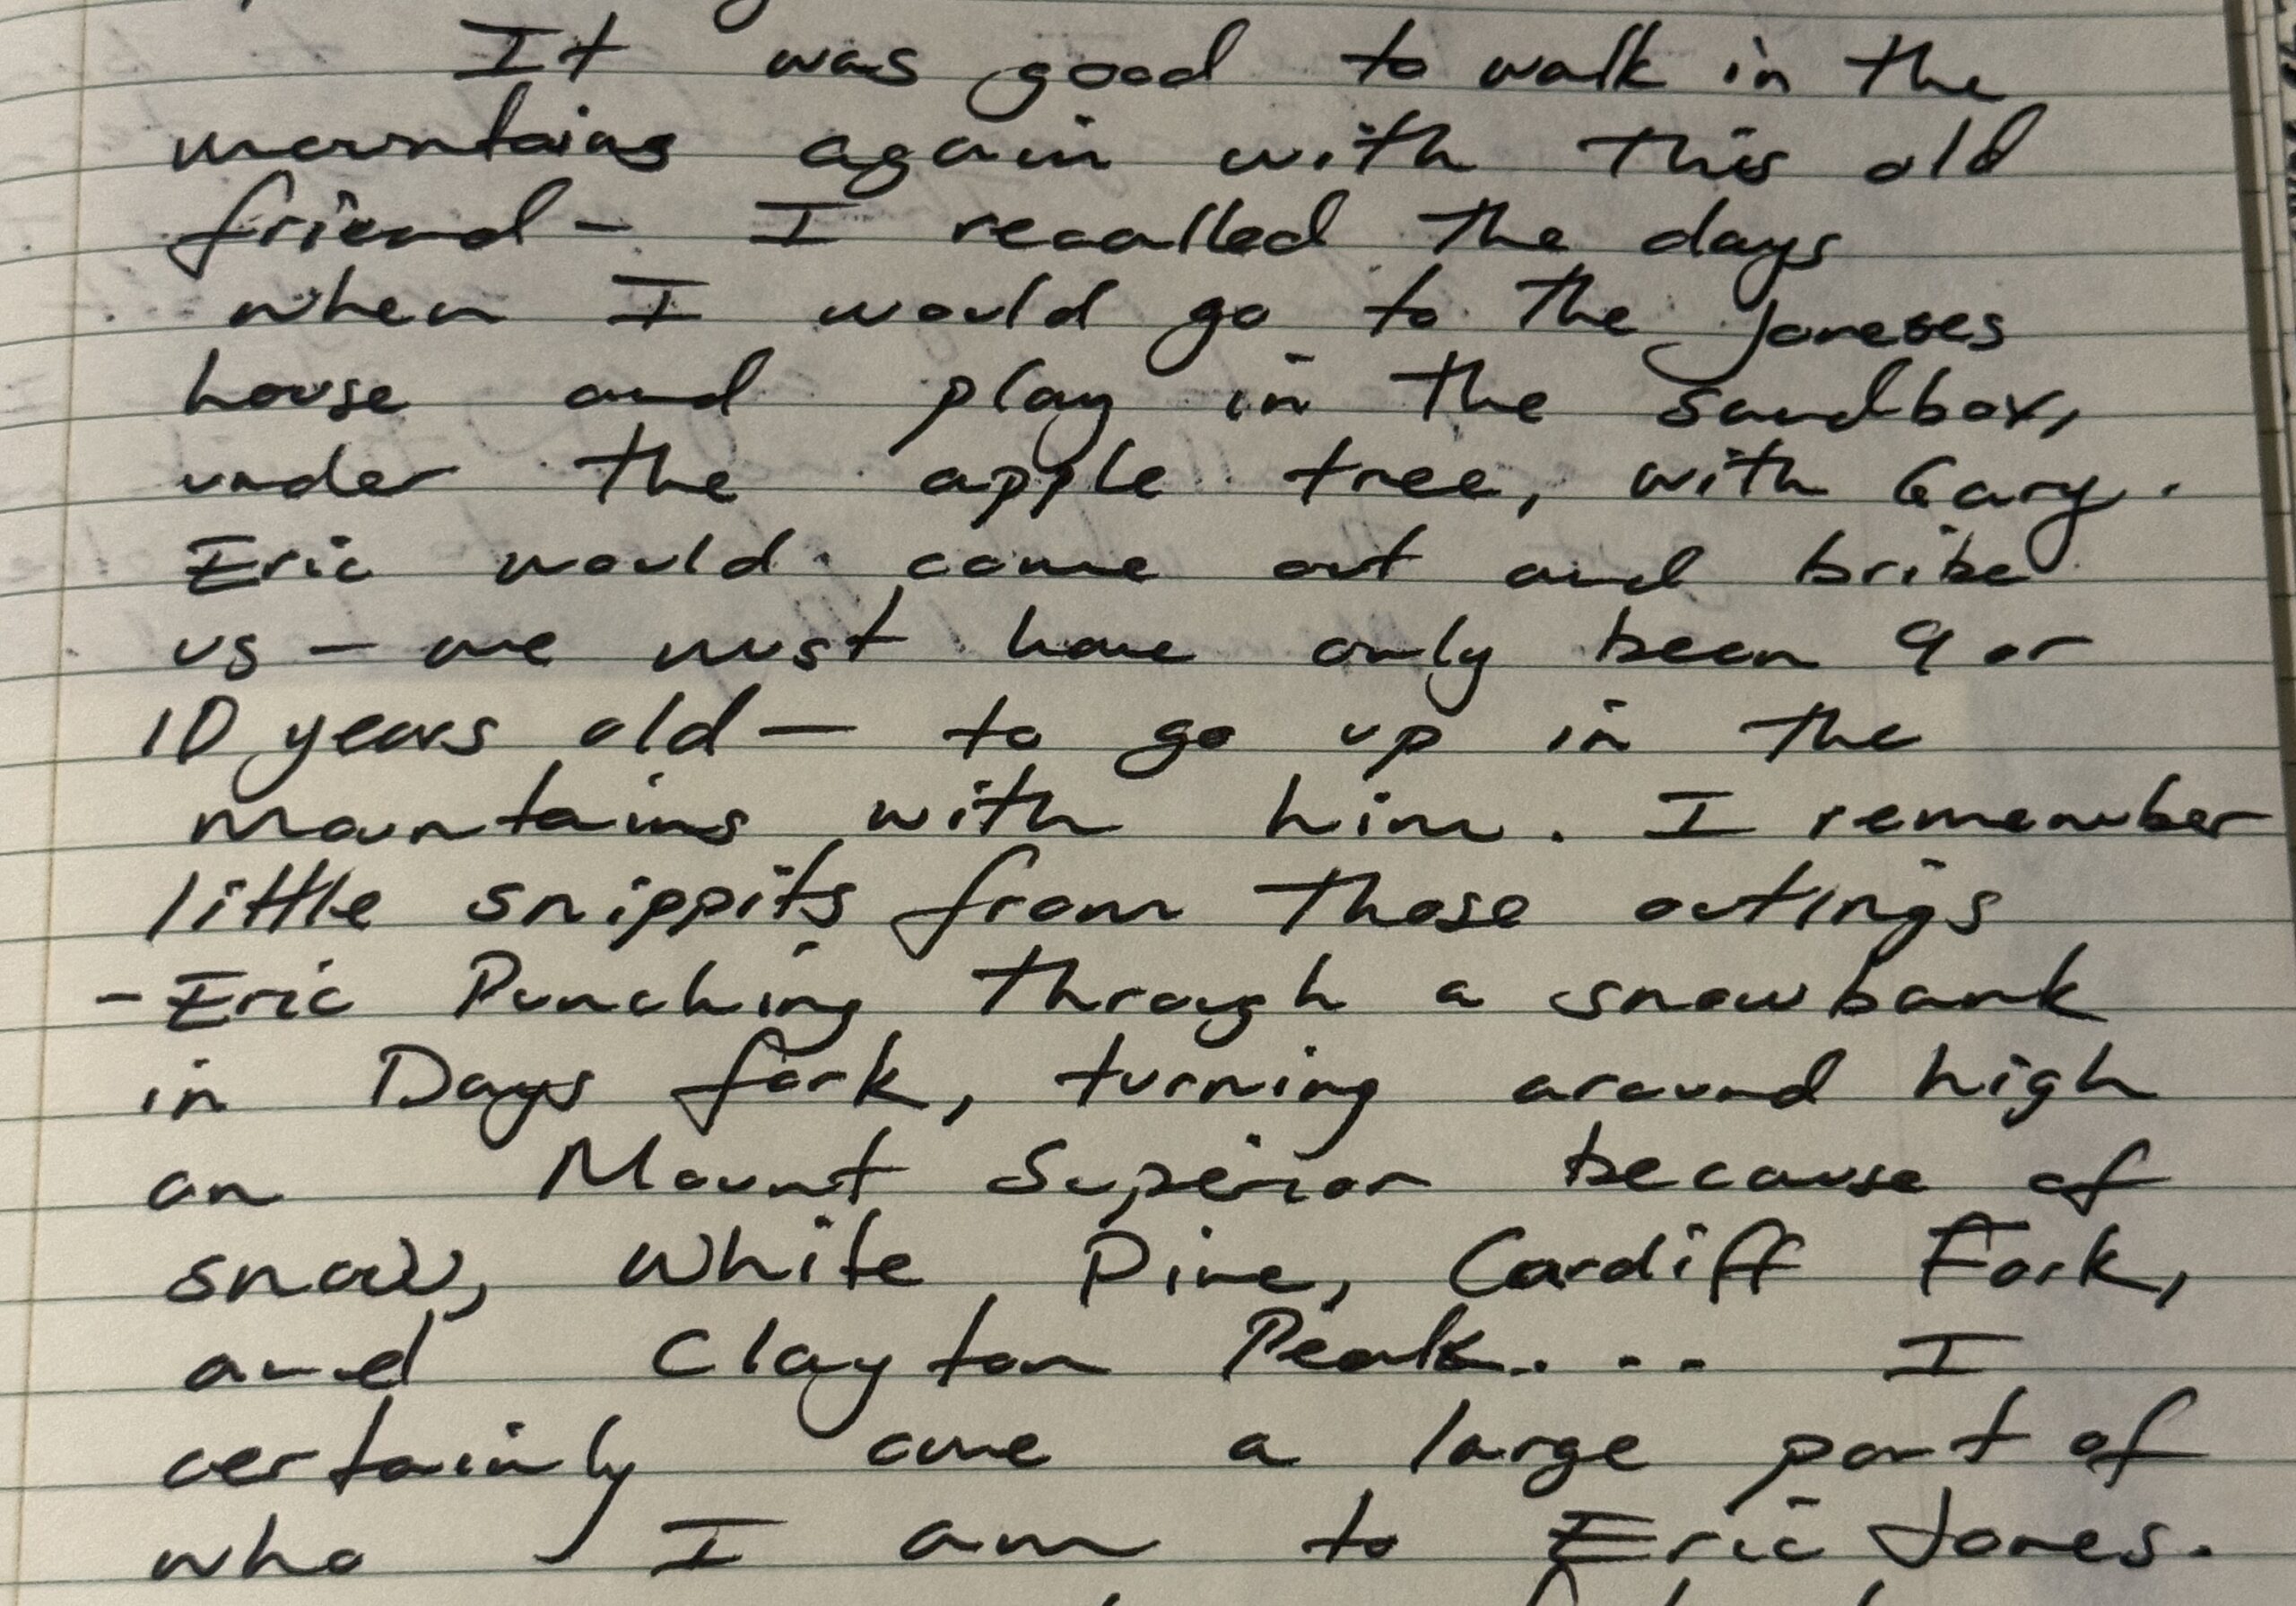 It was good to walk in the
mountains again with this old
friend - I recalled the days
when I would go to the Joneses
house and play in the sandbox,
under the apple tree, with Gary.
Eric would come out and bribe
us - we must have only been 9 or
10 years old - to go up in the
mountains with him. I remember
little snippits from those outings
- Eric Punching through a snowbank
in Days fork, turning around high
on Mount Superior because of
snow, White Pine, Cardiff Fork,
and Clayton Peak... I
certainly owe a large part of
who I am to Eric Jones.